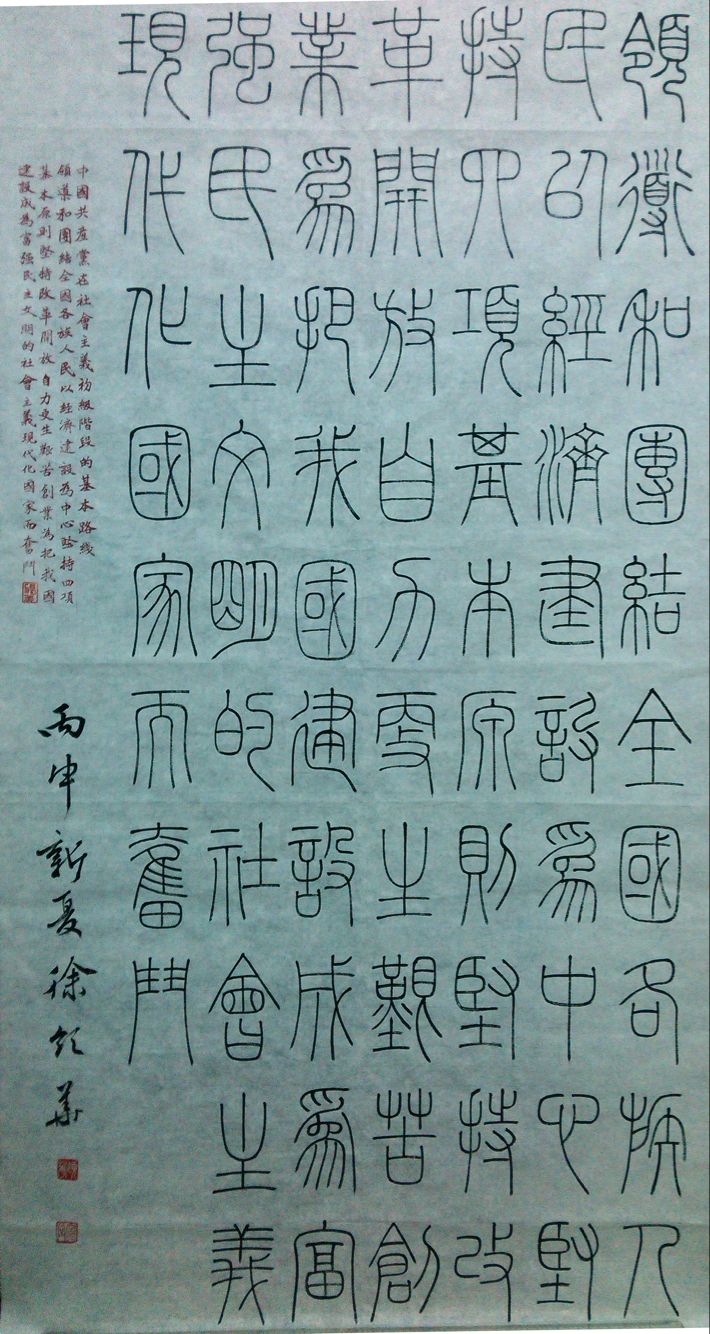 領導和團結全國各族人
民以經濟建設爲中心堅
持四項基本原則堅持改
革開放自力更生艱苦創
業爲把我國建設成爲富
强民主文明的社會主義
現代化國家而奮鬥
中國共產黨在社會主義初級階段的基本路线
領導和團結全國各族人民以經濟建設為中心堅持四項
基本原則堅持改革開放自力更生艱苦創業為把我國
建設成為富强民主文明的社會主義現代化國家而奮鬥
丙申新夏徐華